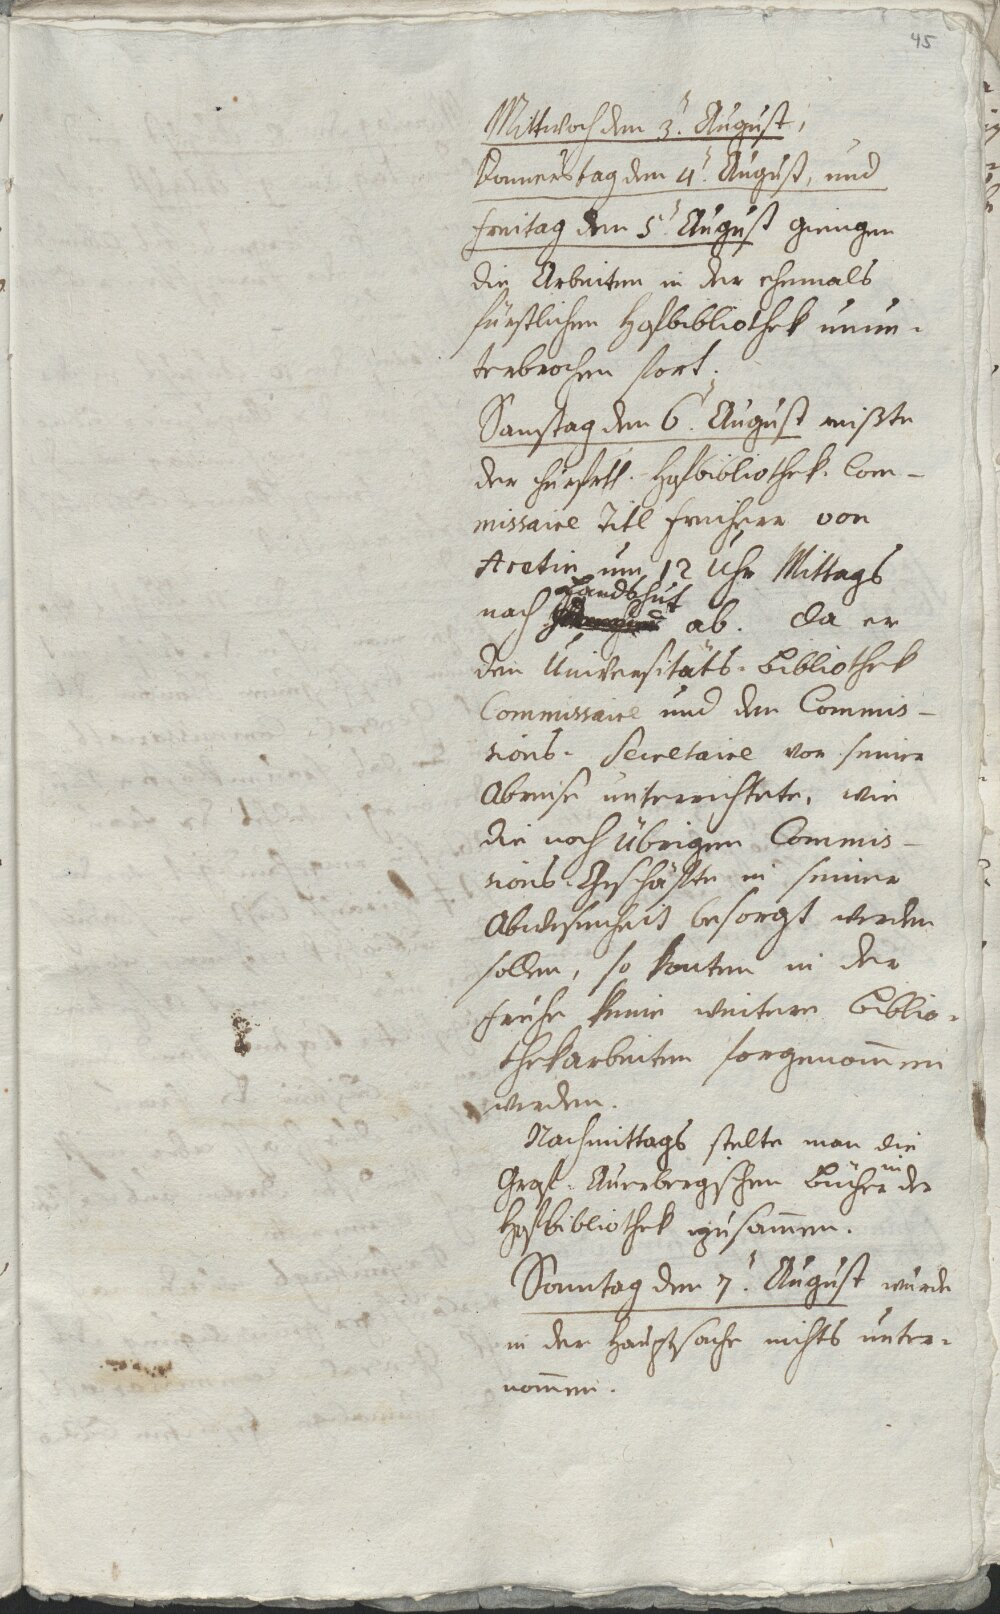 45
Mittwoch den 3t. August,
Donnerstag den 4t. August, und
Freitag den 5t. August giengen
die Arbeiten in der ehemals
fürstlichen Hofbibliothek unun-
terbrochen fort.
Samstag den 6t. August reißte
der churfrtl. Hofbibliothek-Com-
missaire Titl Freiherr von
Aretin um 12 Uhr Mittags
nach Landshut ab. Da er
den Universitäts-Bibliothek
Commissaire und den Commis-
sions-Secretaire vor seiner
Abreise unterrichtete, wie
die noch übrigen Commis-
sions-Geschäfte in seiner
Abwesenheit besorgt werden
sollen, so konten in der
Frühe keine weitere Biblio-
thekarbeiten forgenom̅en
werden.
Nachmittags stelte man die
Graf-Auerbergischen Bücher in der
Hofbibliothek zusam̅en.
Sonntag den 7t. August wurde
in der Hauptsache nichts unter-
nom̅en.